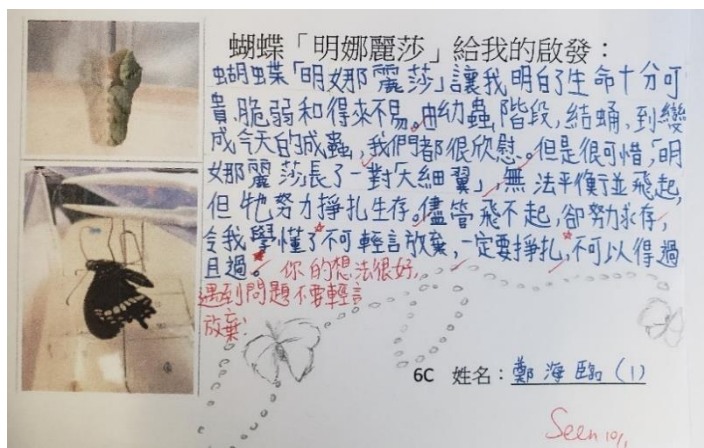 蝴蝶「明娜麗莎」給我的啟發：
蝴蝶「明娜麗莎」讓我明白了生命十分可
貴、脆弱和得來不易。由幼蟲階段，結蛹，到變
成今天的成蟲，我們都很欣慰。但是很可惜，「明
娜麗莎」長了一對「大細翼」，無法平衡並飛起，
但牠努力掙扎生存。儘管飛不起，卻努力求存，
令我學懂了不可輕言放棄，一定要掙扎，不可以得過
且過。
你的想法很好，
遇到問題不要輕言
放棄！
6C 姓名：鄭海臨（1）
Seen